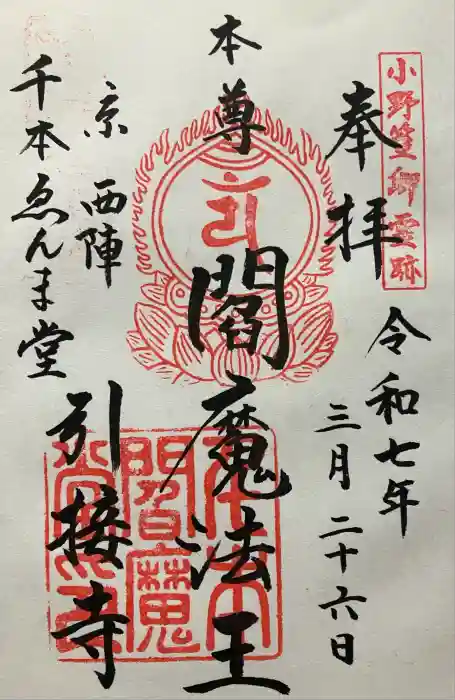 小野篁卿霊跡
奉拝
令和七年
三月二十六日
本尊
閻魔法王
京西陣
千本ゑんま堂
引接寺